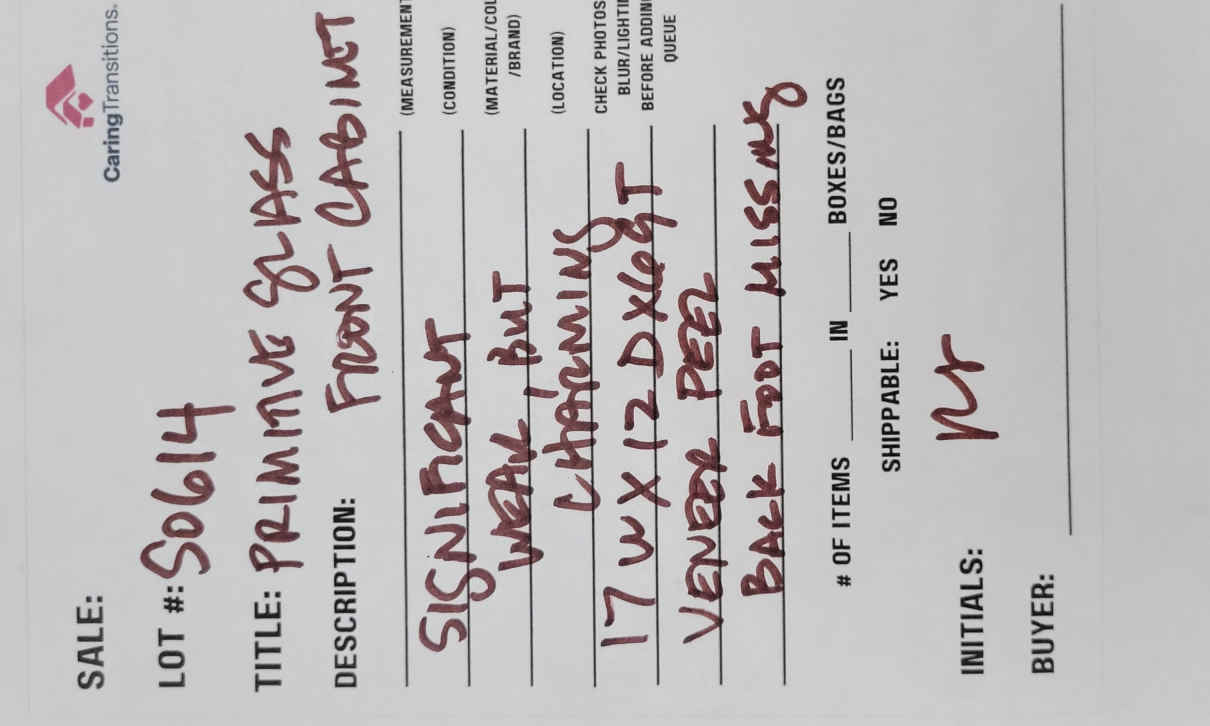 CaringTransitions.
SALE:
LOT #: S0614
TITLE: PRIMITIVE GLASS
FRONT CABINET
DESCRIPTION:
(MEASUREMENT
SIGNIFICANT
(CONDITION)
WEAR, BUT
(MATERIAL/COL
/BRAND)
CHARMING
(LOCATION)
17 W X 12 D X 69 T
CHECK PHOTOS
BLUR/LIGHTIN
BEFORE ADDING
QUEUE
VENEER PEEL
BACK FOOT MISSING
# OF ITEMS ____ IN ____ BOXES/BAGS
SHIPPABLE: YES NO
INITIALS:
BUYER: